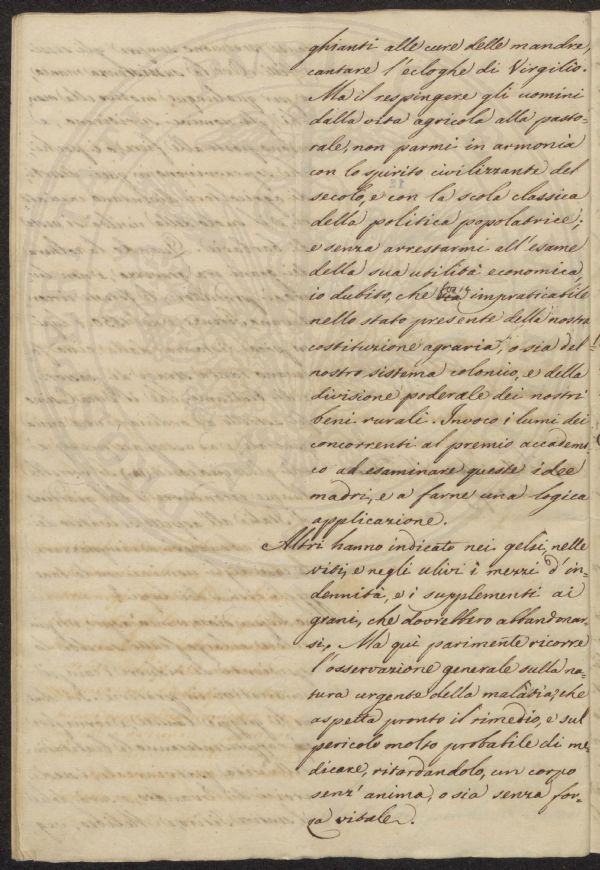 ghianti alle cure delle mandre,
cantare l'ecloghe di Virgilio.
Ma il respingere gli uomini
dalla vita agricola alla pasto=
rale, non parmi in armonia
con lo spirito civilizzante del
secolo, e con la scola classica
della politica popolatrice;
e senza arrestarmi all'esame
della sua utilità economica,
io dubito, che sia impraticabile
nello stato presente della nostra
costituzione agraria, o sia del
nostro sistema colonico, e della
divisione poderale dei nostri
beni rurali. Invoco i lumi dei
concorrenti al premio accademi=
co ad esaminare queste idee
madri, e a farne una logica
applicazione.
Altri hanno indicato nei gelsi, nelle
viti, e negli ulivi i mezzi d'in=
dennità, e i supplementi ai
grani, che dovrebbero abbandonar=
si. Ma quì parimente ricorre
l'osservazione generale sulla na=
tura urgente della malattia, che
aspetta pronto il rimedio, e sul
pericolo molto probabile di me=
dicare, ritardandolo, un corpo
senz'anima, o sia senza for=
za vitale.